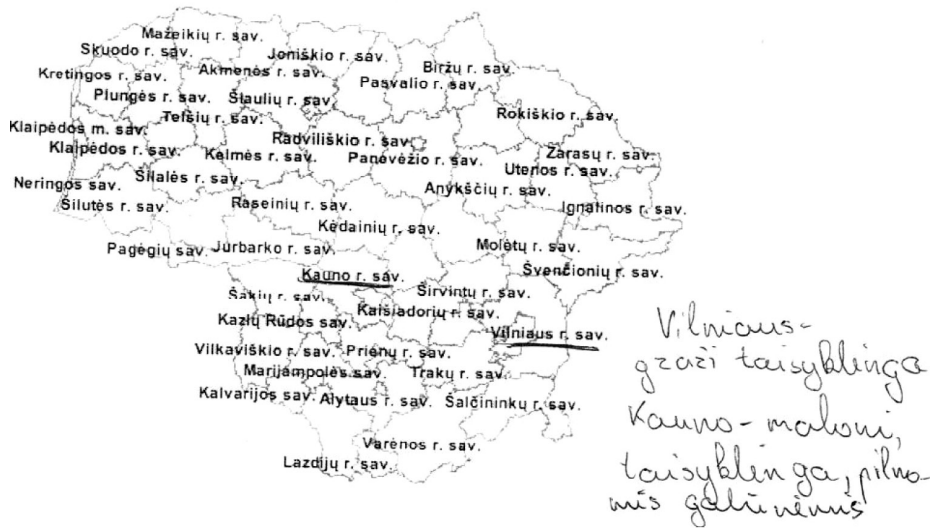 Mažeikių r. sav.
Skuodo r. sav.
Joniškio r. sav.
Kretingos r. sav.
Akmenės r. sav.
Biržų r. sav.
Pasvalio r. sav.
Plungės r. sav.
Šiaulių r. sav.
Telšių r. sav.
Rokiškio r. sav.
Klaipėdos m. sav.
Radviliškio r. sav.
Klaipėdos r. sav.
Kelmės r. sav.
Panevėžio r. sav.
Zarasų r. sav.
Utenos r. sav.
Neringos sav.
Šilalės r. sav.
Anykščių r. sav.
Šilutės r. sav.
Raseinių r. sav.
Ignalinos r. sav.
Kėdainių r. sav.
Pagėgių sav.
Jurbarko r. sav.
Molėtų r. sav.
Kauno r. sav.
Švenčionių r. sav.
Šakių r. sav.
Širvintų r. sav.
Kazlų Rūdos sav.
Kaišiadorių r. sav.
Vilniaus r. sav.
Vilkaviškio r. sav.
Prienų r. sav.
Marijampolės sav.
Trakų r. sav.
Kalvarijos sav.
Alytaus r. sav.
Šalčininkų r. sav.
Varėnos r. sav.
Lazdijų r. sav.
Vilniaus-
graži taisyklinga
Kauno - maloni,
taisyklinga, pilno-
mis galūnėmis